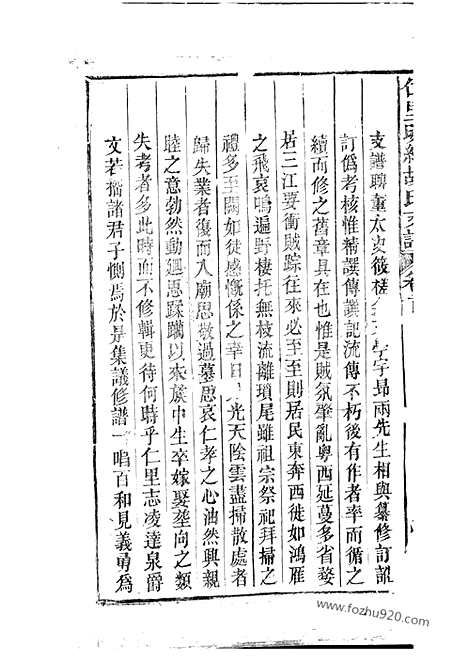 仁里明經胡氏支譜 卷首
支譜聘董太史筱槎 宇昂雨先生相與纂修訂訛
訂僞考核惟精譔傳譔記流傳不朽後有作者率而循之
續而修之舊章具在也惟是賊氛肇亂粵西延蔓多省婺
居三江要衝賊踪往來必至至則居民東奔西徙如鴻雁
之飛哀嗚遍野棲托無枝流離瑣尾雖祖宗祭祀拜掃之
禮多至闕如徒感慨係之幸日 光天陰雲盡掃散處者
歸失業者復而入廟思敬過墓思哀仁孝之心油然興親
睦之意勃然動迴思蹂躪以來族中生卒嫁娶塋向之類
失考者多此時而不修輯更待何時乎仁里志凌達泉爵
文若獮諸君子惻焉於是集議修譜一唱百和見義勇為
www.fozhu920.com